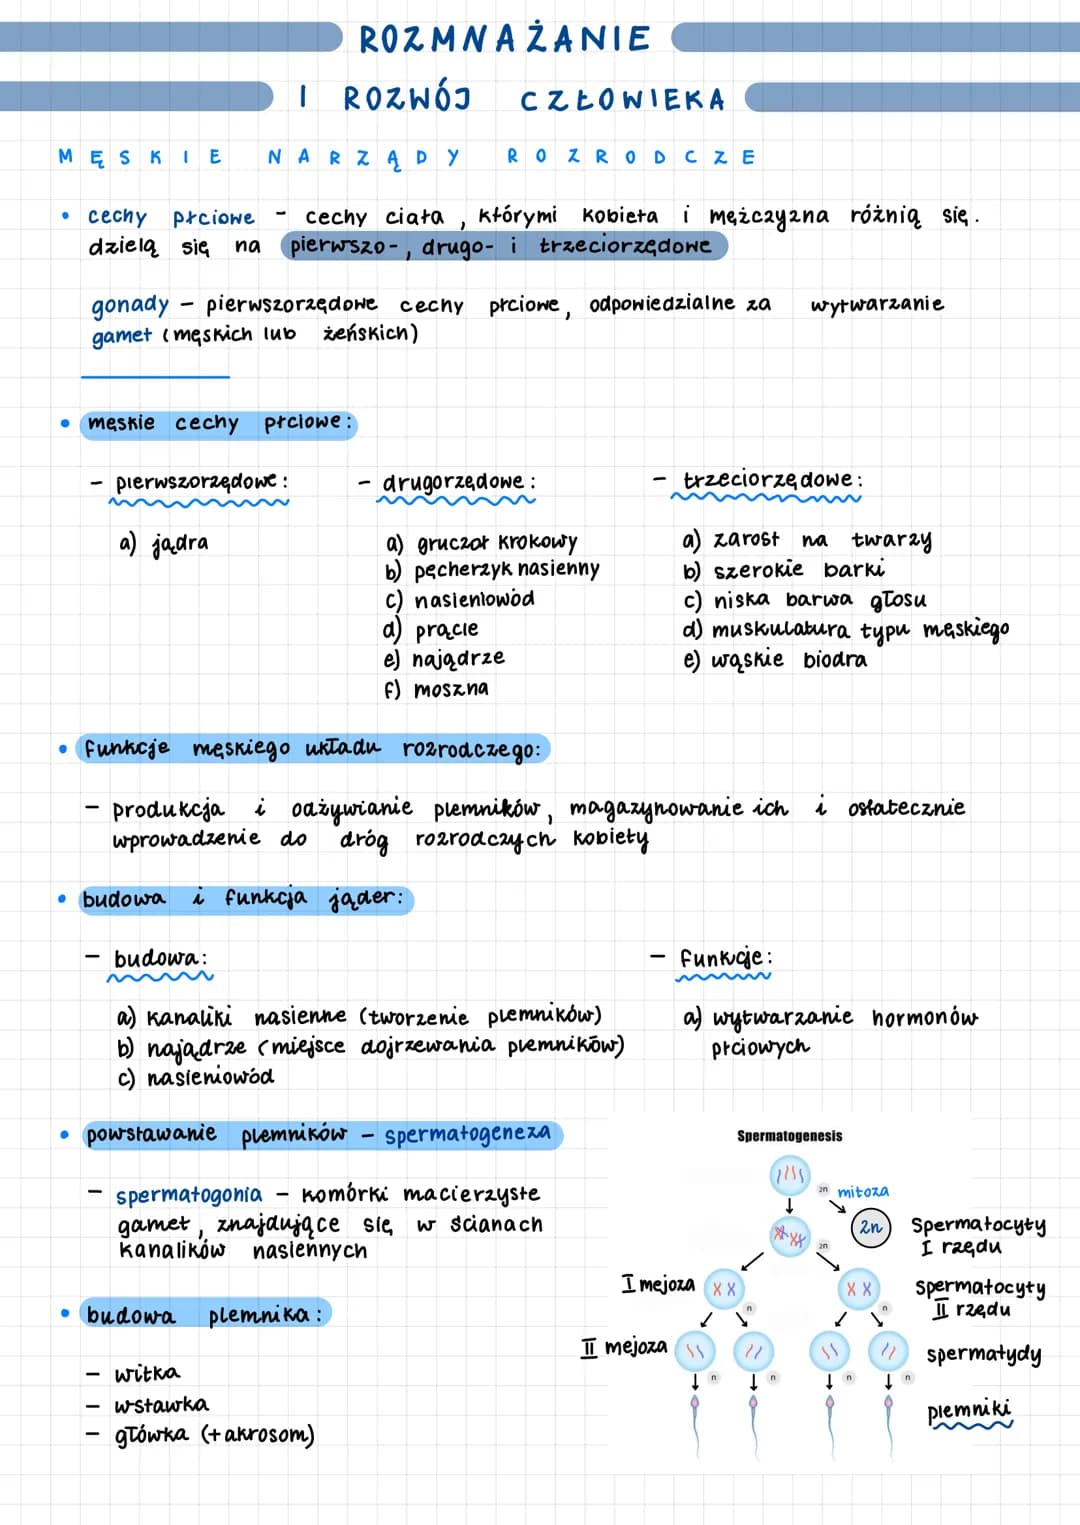 ROZMNAŻANIE
I ROZWÓJ CZŁOWIEKA
MĘSKIE NARZĄDY ROZRODCZE
• cechy płciowe - cechy ciała, którymi kobieta i mężczyzna różnią się.
dzielą się na pierwszo-, drugo- i trzeciorzędowe
gonady - pierwszorzędowe cechy płciowe, odpowiedzialne za wytwarzanie
gamet (męskich lub żeńskich)
• męskie cechy płciowe:
- pierwszorzędowe:
a) jądra
- drugorzędowe:
a) gruczoł krokowy
b) pęcherzyk nasienny
c) nasieniowód
d) prącie
e) najądrze
f) moszna
- trzeciorzędowe:
a) zarost na twarzy
b) szerokie barki
c) niska barwa głosu
d) muskulatura typu męskiego
e) wąskie biodra
• funkcje męskiego układu rozrodczego:
- produkcja i odżywianie plemników, magazynowanie ich i ostatecznie
wprowadzenie do dróg rozrodczych kobiety
• budowa i funkcja jąder:
- budowa:
a) kanaliki nasienne (tworzenie plemników)
b) najądrze (miejsce dojrzewania plemników)
c) nasieniowód
- funkcje:
a) wytwarzanie hormonów
płciowych
• powstawanie plemników - spermatogeneza
- spermatogonia - komórki macierzyste
gamet, znajdujące się w ścianach
kanalików nasiennych
• budowa plemnika:
- witka
- wstawka
- główka (+akrosom)
Spermatogenesis
2n mitoza
2n
2n
Spermatocyty
I rzędu
I mejoza
n
n
Spermatocyty
II rzędu
II mejoza
n
n
n
n
spermatydy
plemniki